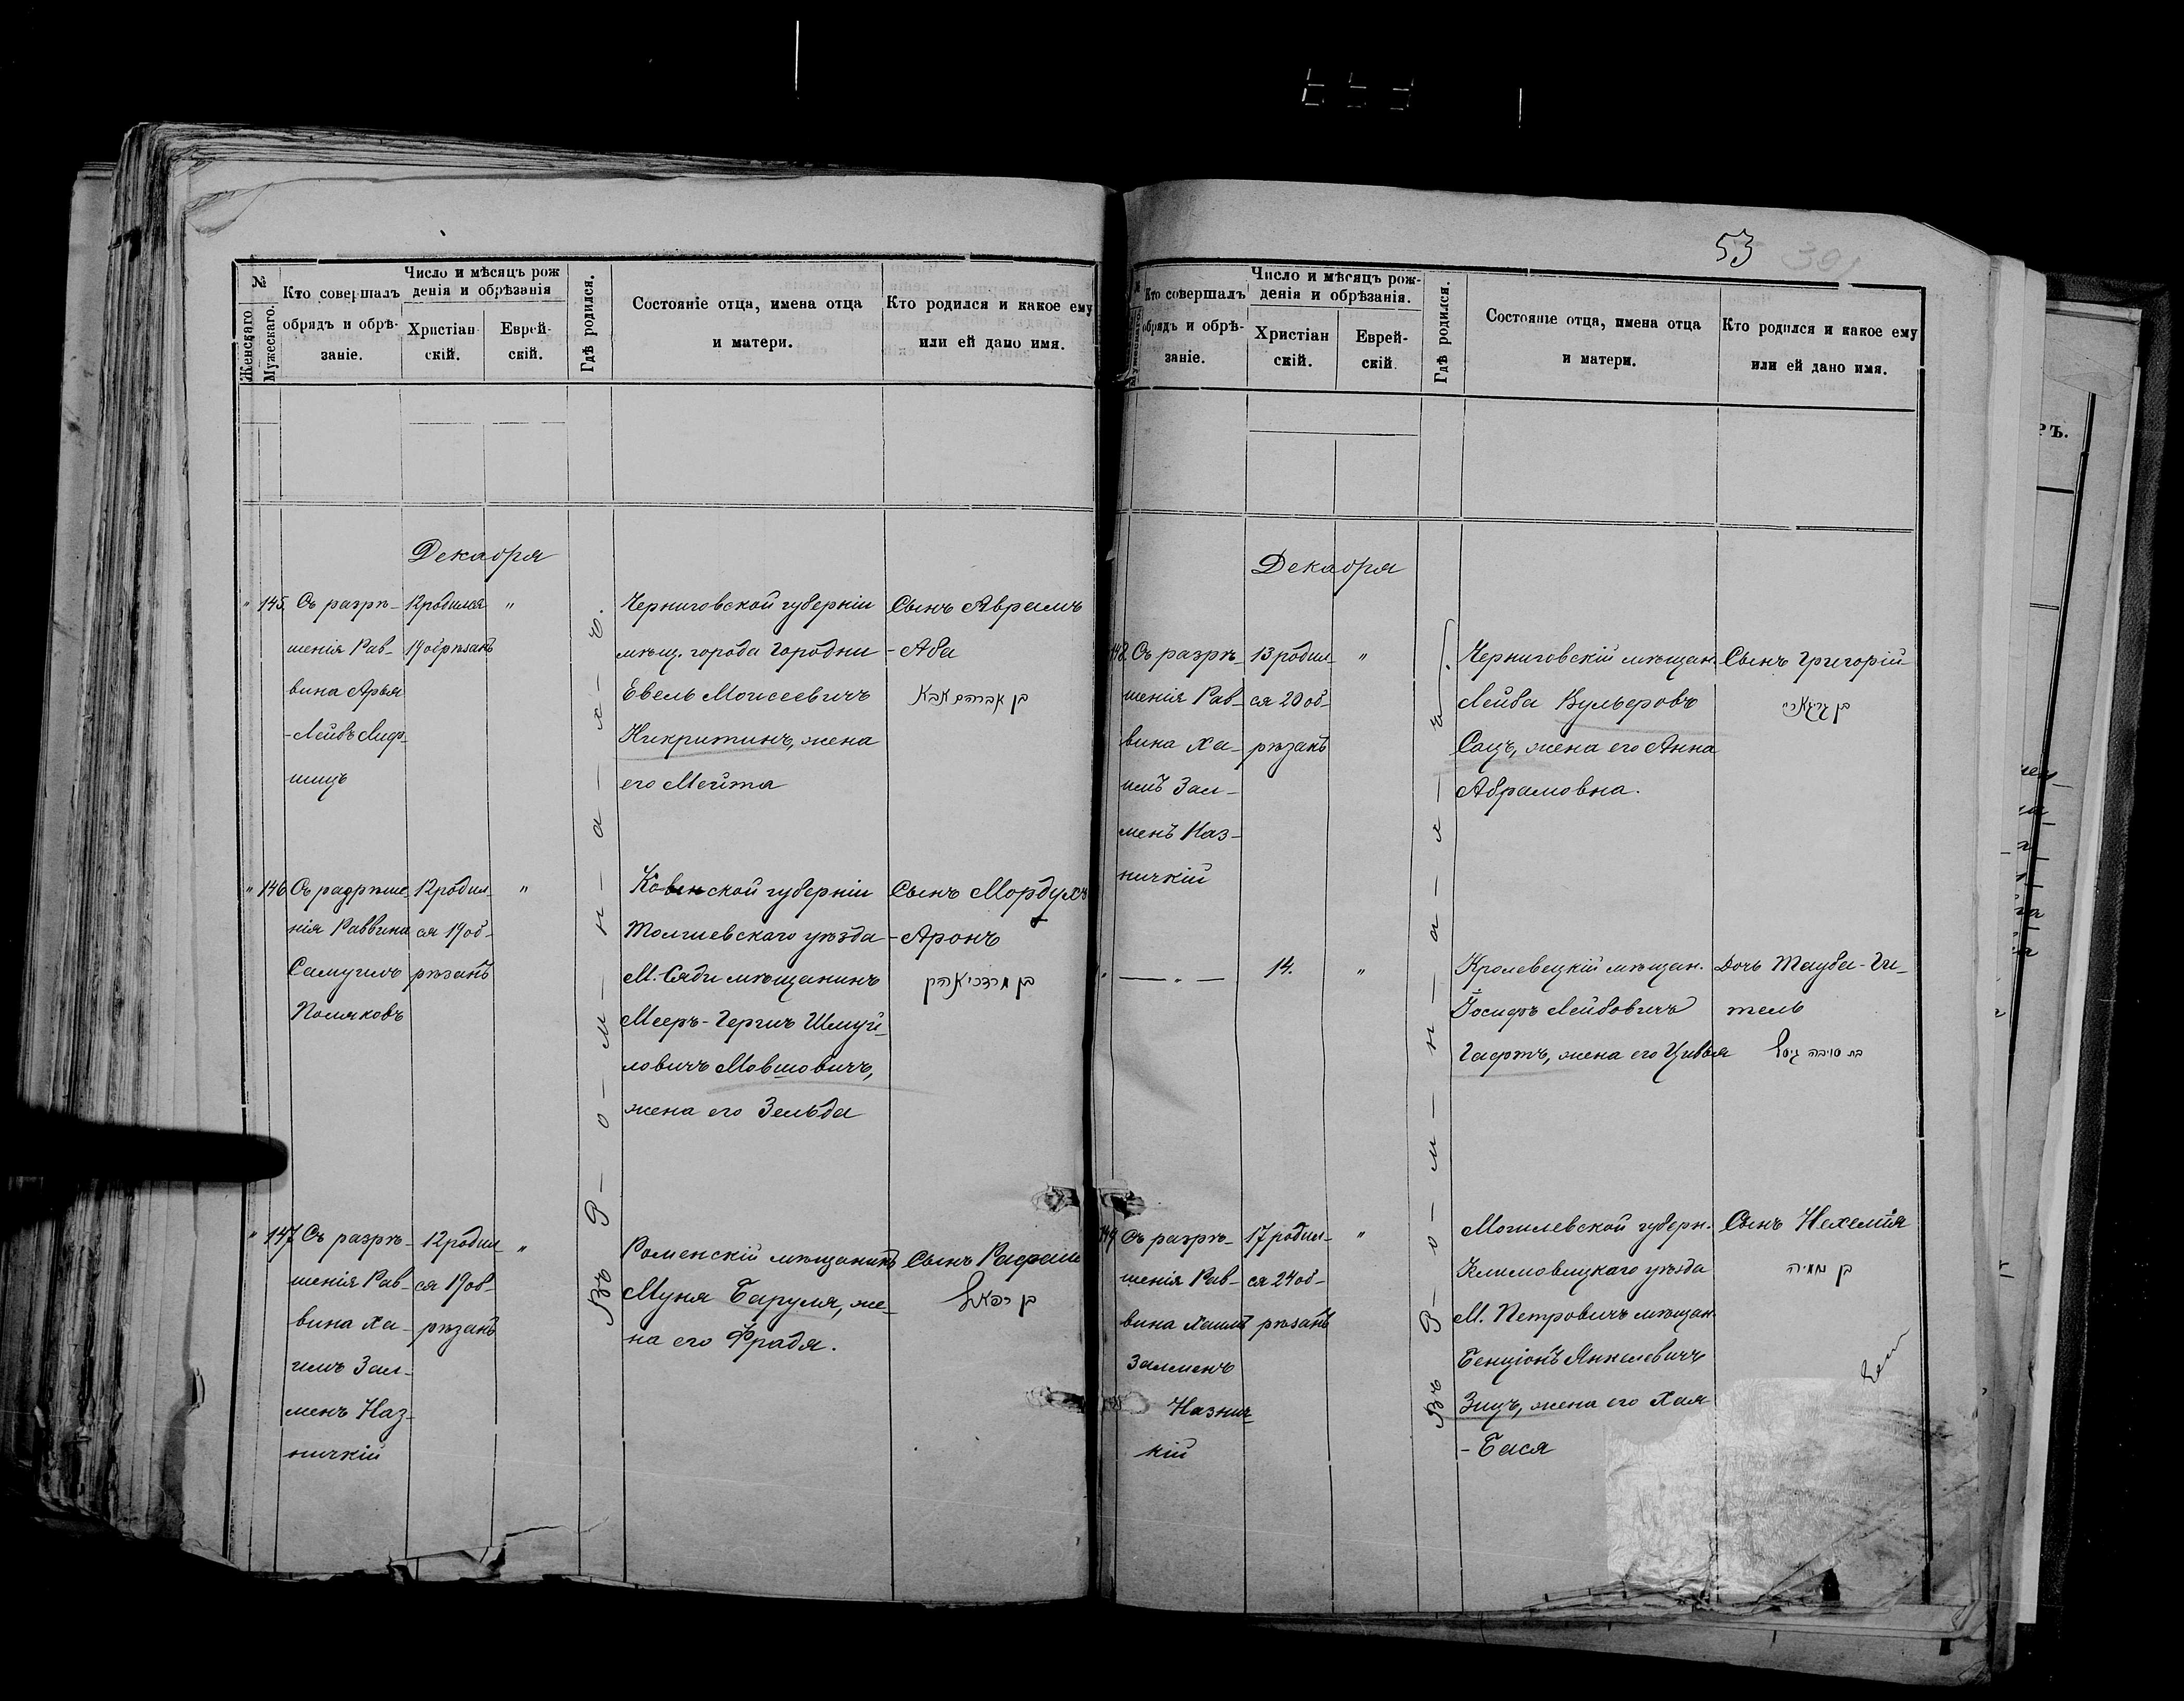 №
Женскаго.
Мужескаго.
Кто совершалъ
обрядъ и обрѣ-
заніе.
Число и мѣсяцъ рож
денія и обрѣзанія
Христіан-
скій.
Еврей-
скій.
Гдѣ родился.
Состояніе отца, имена отца
и матери.
Кто родился и какое ему
или ей дано имя.
Декабря
" 145. Съ разрѣ-
шенія Рав-
вина Арья
-Лейбъ Лиф-
шицъ
12 родился
19 обрѣзанъ
"
Черниговской губерніи
мѣщ. города Городни
Евель Моисеевичъ
Никритинъ, жена
его Мейта
Сынъ Аврамъ
-Аба
בן אברהם אבא
" 146 Съ разрѣше-
нія Раввина
Самуилъ
Поляковъ
12 родил-
ся 19 об-
рѣзанъ
"
Ковенской губерніи
Тельшевскаго уѣзда
М. Сяди мѣщанинъ
Мееръ-Герцъ Шмуй-
ловичъ Мовшовичъ,
жена его Зельда
Сынъ Мордухъ
-Аронъ
בן מרדכי אהרן
" 147 Съ разрѣ-
шенія Рав-
вина Ха-
имъ Зал-
менъ Наз-
ничкій
12 родил
ся 19 об-
рѣзанъ
"
Роменскій мѣщанинъ
Муня Баруля, же-
на его Фрадя.
Сынъ Рафаилъ
בן רפאל
Въ Р-о-м-н-а-х-ъ.
53
Кто совершалъ
обрядъ и обрѣ-
заніе.
Число и мѣсяцъ рож-
денія и обрѣзанія.
Христіан
скій.
Еврей-
скій.
Гдѣ родился.
Состояніе отца, имена отца
и матери.
Кто родился и какое ему
или ей дано имя.
Декабря
148. Съ разрѣ-
шенія Рав-
вина Ха-
имъ Зал-
менъ Наз-
ничкій
13 родил-
ся 20 об-
рѣзанъ
"
Черниговскій мѣщан.
Лейба Вульфовъ
Сацъ, жена его Анна
Абрамовна.
Сынъ Григорій
בן
" — " —
14.
"
Кролевецкій мѣщан.
Іосифъ Лейбовичъ
Гафтъ, жена его Цивья
Дочь Тауба-Ги-
тель
בת טויבה גיטל
149 Съ разрѣ-
шенія Рав-
вина Хаимъ
Залменъ
Назнич-
кій
17 родил-
ся 24 об-
рѣзанъ
"
Могилевской губерн.
Климовицкаго уѣзда
М. Петровичъ мѣщан.
Бенціонъ Янкелевичъ
Зицъ, жена его Хая
-Бася
Сынъ Нехемія
בן נחמיה
Въ Р-о-м-н-а-х-ъ.